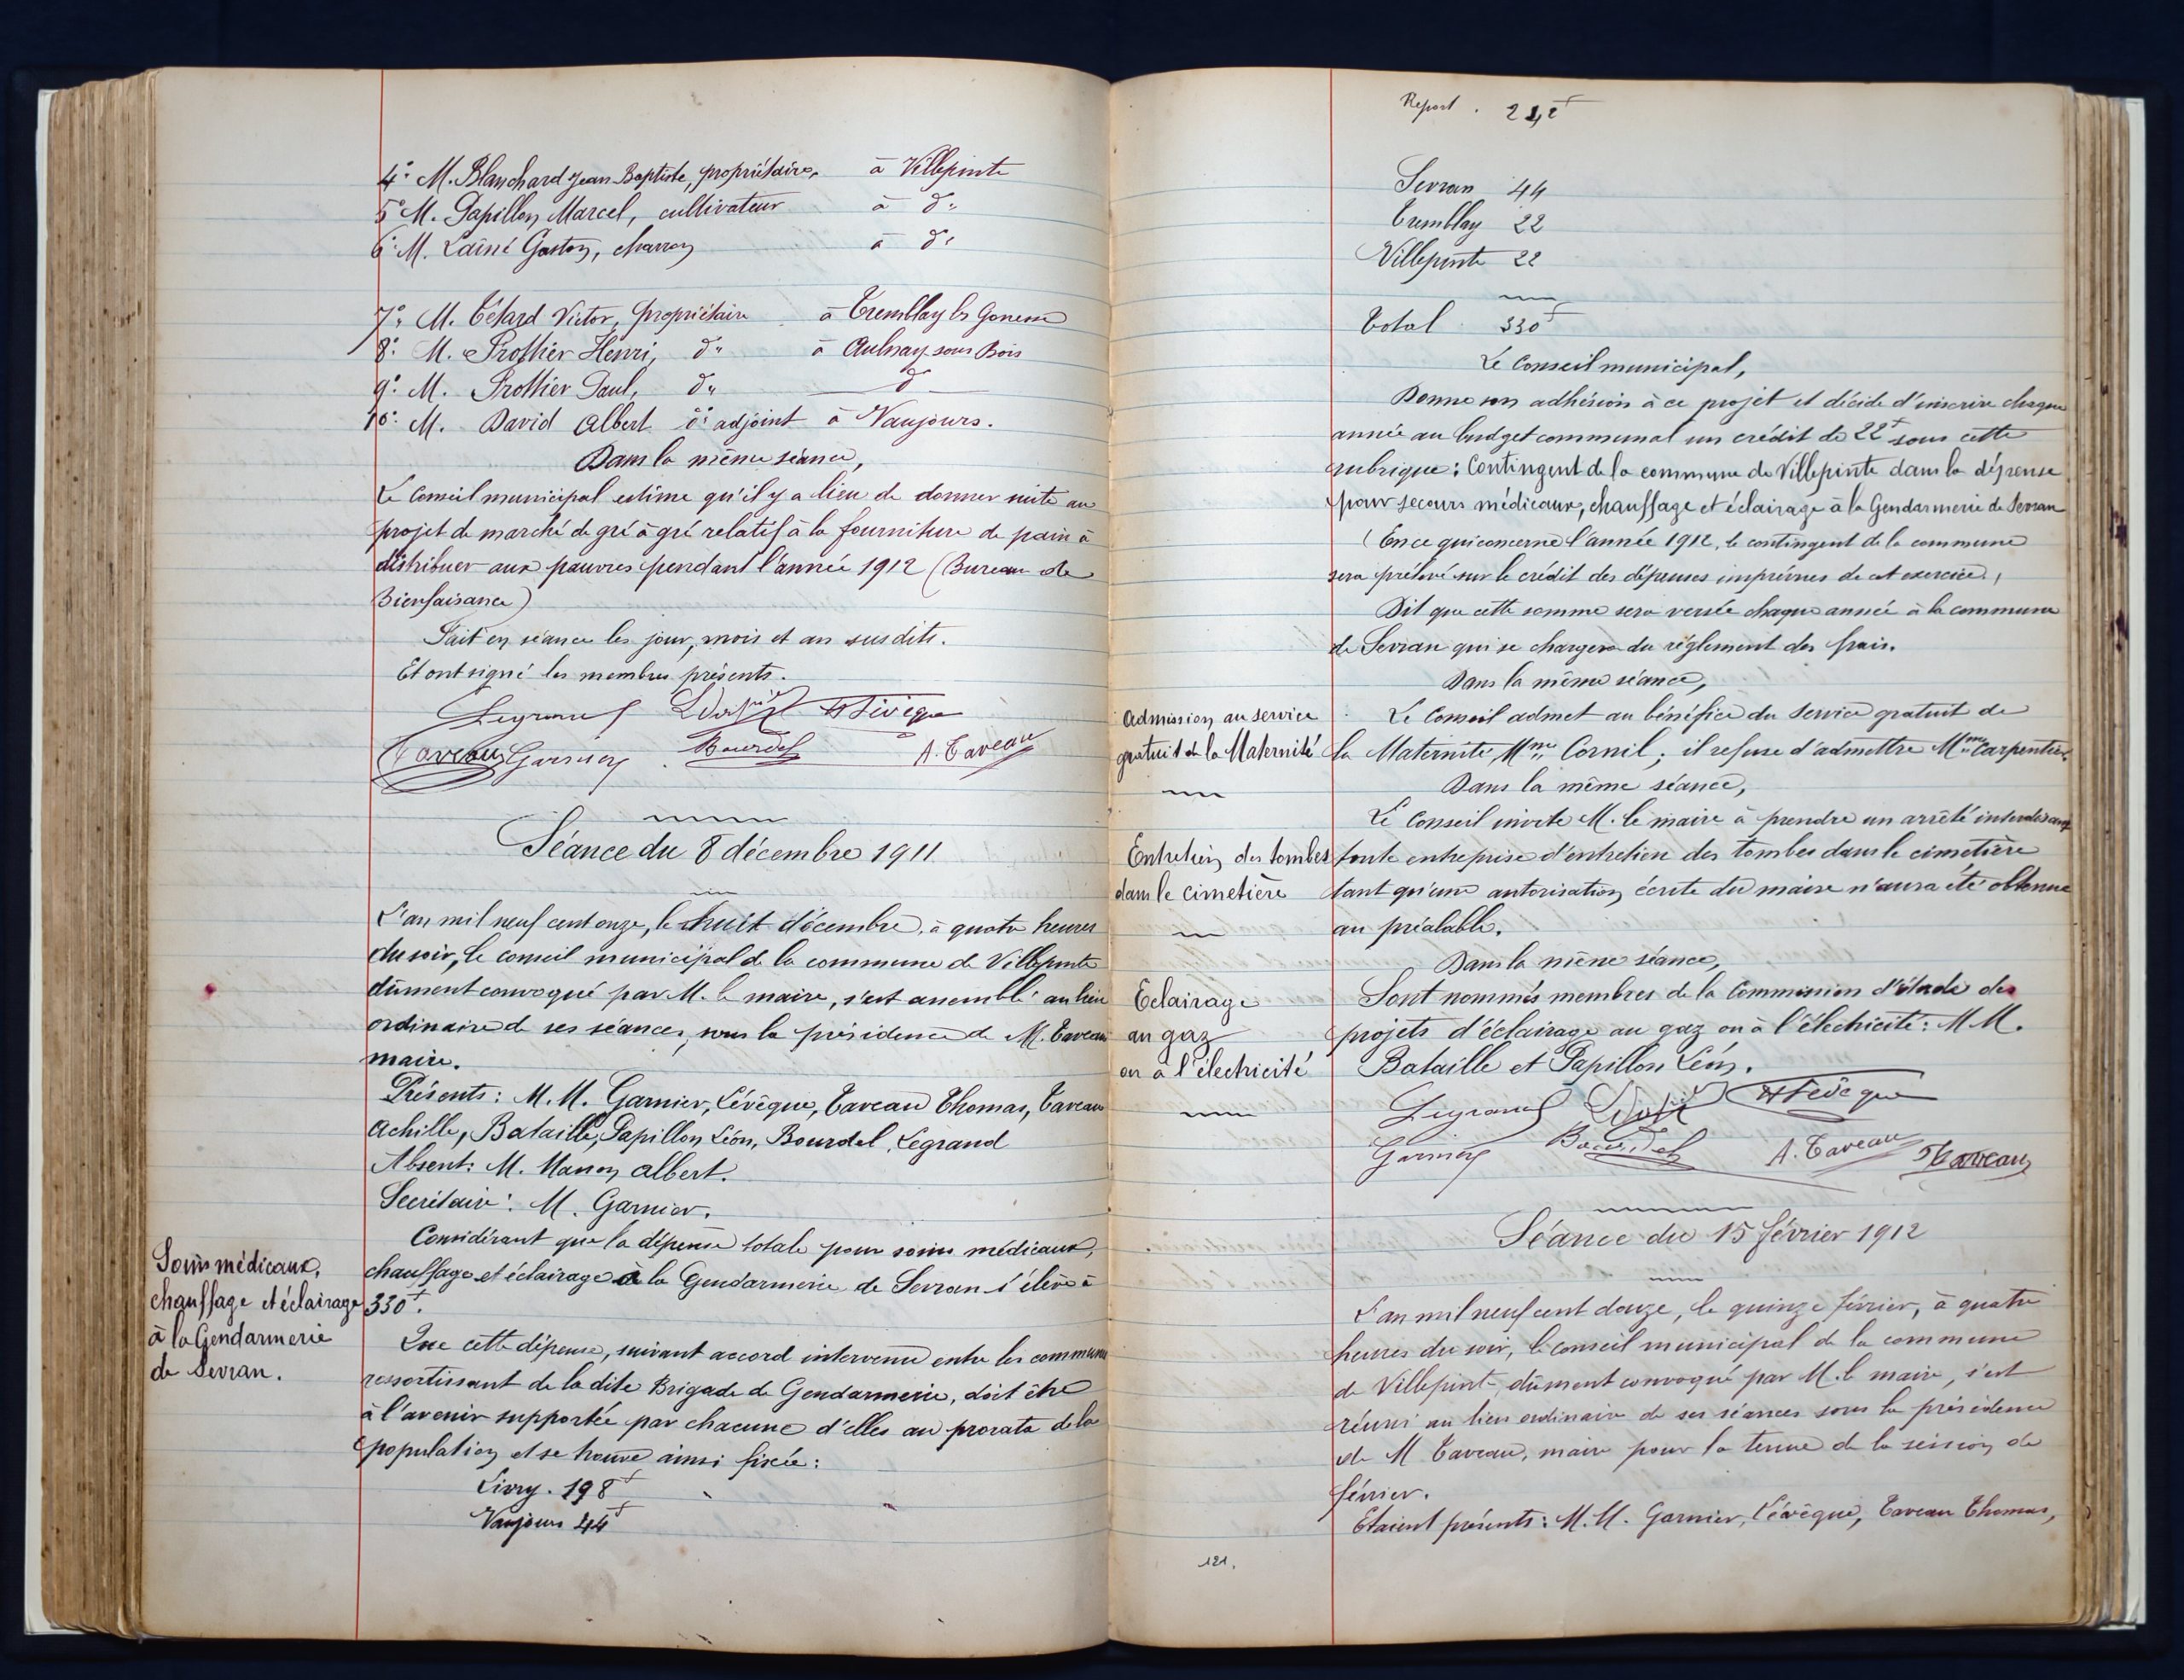 4° M. Blanchard Jean-Baptiste, propriétaire, à Villepinte
5° M. Papillon Marcel, cultivateur à d°
6° M. Lainé Gaston, charron à d°
7° M. Tétard Victor, propriétaire à Tremblay les Gonesse
8° M. Trottier Henri, d° à Aulnay-sous-Bois
9° M. Trottier Paul, d° d°
10° M. David Albert adjoint à Vaujours.
Dans la même séance,
Le Conseil municipal estime qu'il y a lieu de donner suite au
projet de marché de gré à gré relatif à la fourniture de pain à
distribuer aux pauvres pendant l'année 1912 (Bureau de
Bienfaisance)
Fait en séance les jour, mois et an susdits.
Et ont signé les membres présents.
Legrand HLévêque
Taveau Garnier Bourdel A. Taveau
Séance du 8 décembre 1911
L'an mil neuf cent onze, le huit décembre, à quatre heures
du soir, le conseil municipal de la commune de Villepinte
dûment convoqué par M. le maire, s'est assemblé au lieu
ordinaire de ses séances, sous la présidence de M. Taveau
maire.
Présents : M.M. Garnier, Lévêque, Taveau Thomas, Taveau
Achille, Bataille, Papillon Léon, Bourdel, Legrand
Absent : M. Manon Albert.
Secrétaire : M. Garnier.
Soins médicaux,
chauffage et éclairage
à la Gendarmerie
de Sevran.
Considérant que la dépense totale pour soins médicaux,
chauffage et éclairage à la Gendarmerie de Sevran s'élève à
330f.
Que cette dépense, suivant accord intervenu entre les communes
ressortissant de la dite Brigade de Gendarmerie, doit être
à l'avenir supportée par chacune d'elles au prorata de la
population et se trouve ainsi fixée :
Livry. 198f
Vaujours 44f
Report. 242f
Sevran 44
Tremblay 22
Villepinte 22
Total 330f
Le Conseil municipal,
Donne son adhésion à ce projet et décide d'inscrire chaque
année au budget communal un crédit de 22f sous cette
rubrique : Contingent de la commune de Villepinte dans la dépense
pour secours médicaux, chauffage et éclairage à la Gendarmerie de Sevran
(En ce qui concerne l'année 1912, le contingent de la commune
sera prélevé sur le crédit des dépenses imprévues de cet exercice)
Dit que cette somme sera versée chaque année à la commune
de Sevran qui se chargera du règlement des frais.
Dans la même séance,
Admission au service
gratuit de la Maternité
Le Conseil admet au bénéfice du Service gratuit de
la Maternité Mme Cornil ; il refuse d'admettre Mme Carpentier.
Dans la même séance,
Entretien des tombes
dans le cimetière
Le Conseil invite M. le maire à prendre un arrêté interdisant
toute entreprise d'entretien des tombes dans le cimetière
tant qu'une autorisation écrite du maire n'aura été obtenue
au préalable.
Dans la même séance,
Eclairage
au gaz
ou à l'électricité
Sont nommés membres de la Commission d'étude des
projets d'éclairage au gaz ou à l'électricité : M.M.
Bataille et Papillon Léon.
Legrand HLévêque
Garnier Bourdel A. Taveau Taveau
Séance du 15 février 1912
L'an mil neuf cent douze, le quinze février, à quatre
heures du soir, le conseil municipal de la commune
de Villepinte dûment convoqué par M. le maire, s'est
réuni au lieu ordinaire de ses séances sous la présidence
de M Taveau, maire pour la tenue de la session de
février.
Etaient présents : M.M. Garnier, Lévêque, Taveau Thomas,
121.